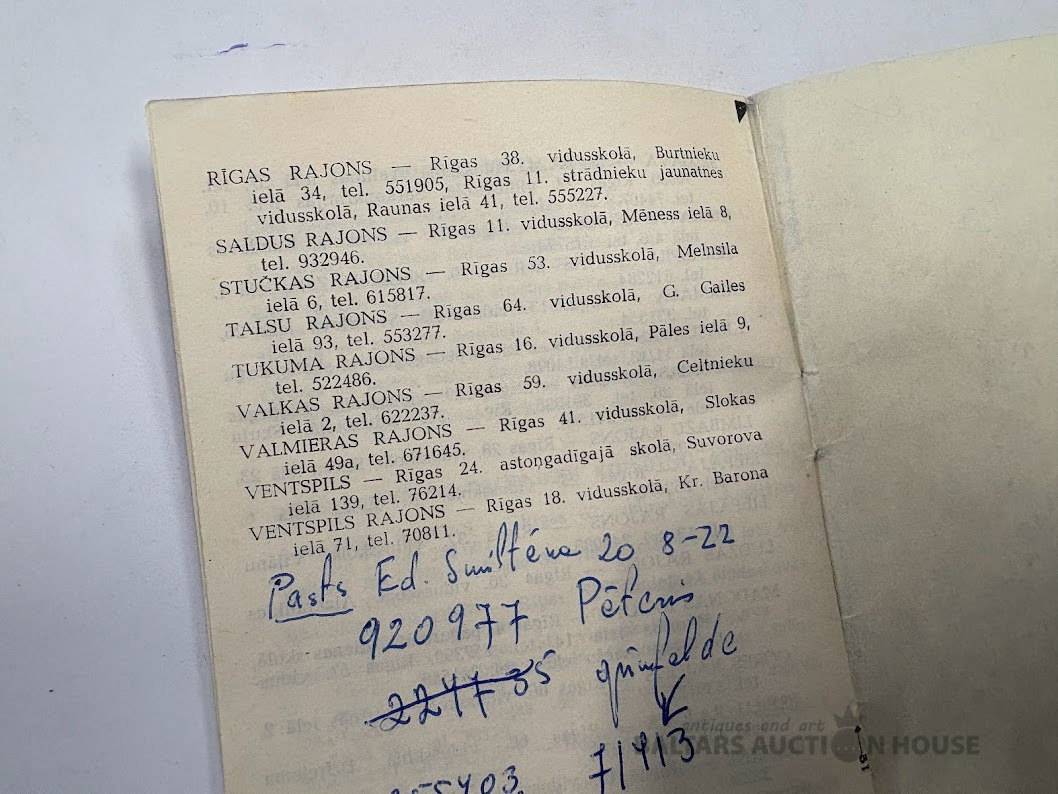 RĪGAS RAJONS — Rīgas 38. vidusskolā, Burtnieku
ielā 34, tel. 551905, Rīgas 11. strādnieku jaunatnes
vidusskolā, Raunas ielā 41, tel. 555227.
SALDUS RAJONS — Rīgas 11. vidusskolā, Mēness ielā 8,
tel. 932946.
STUČKAS RAJONS — Rīgas 53. vidusskolā, Melnsila
ielā 6, tel. 615817.
TALSU RAJONS — Rīgas 64. vidusskolā, G. Gailes
ielā 93, tel. 553277.
TUKUMA RAJONS — Rīgas 16. vidusskolā, Pāles ielā 9,
tel. 522486.
VALKAS RAJONS — Rīgas 59. vidusskolā, Celtnieku
ielā 2, tel. 622237.
VALMIERAS RAJONS — Rīgas 41. vidusskolā, Slokas
ielā 49a, tel. 671645.
VENTSPILS — Rīgas 24. astoņgadīgajā skolā, Suvorova
ielā 139, tel. 76214.
VENTSPILS RAJONS — Rīgas 18. vidusskolā, Kr. Barona
ielā 71, tel. 70811.
Pasts Ed. Smiltēna 20 8-22
920977 Pēteris
grīnfelde
71413
antiques and art
BALTARS AUCTION HOUSE